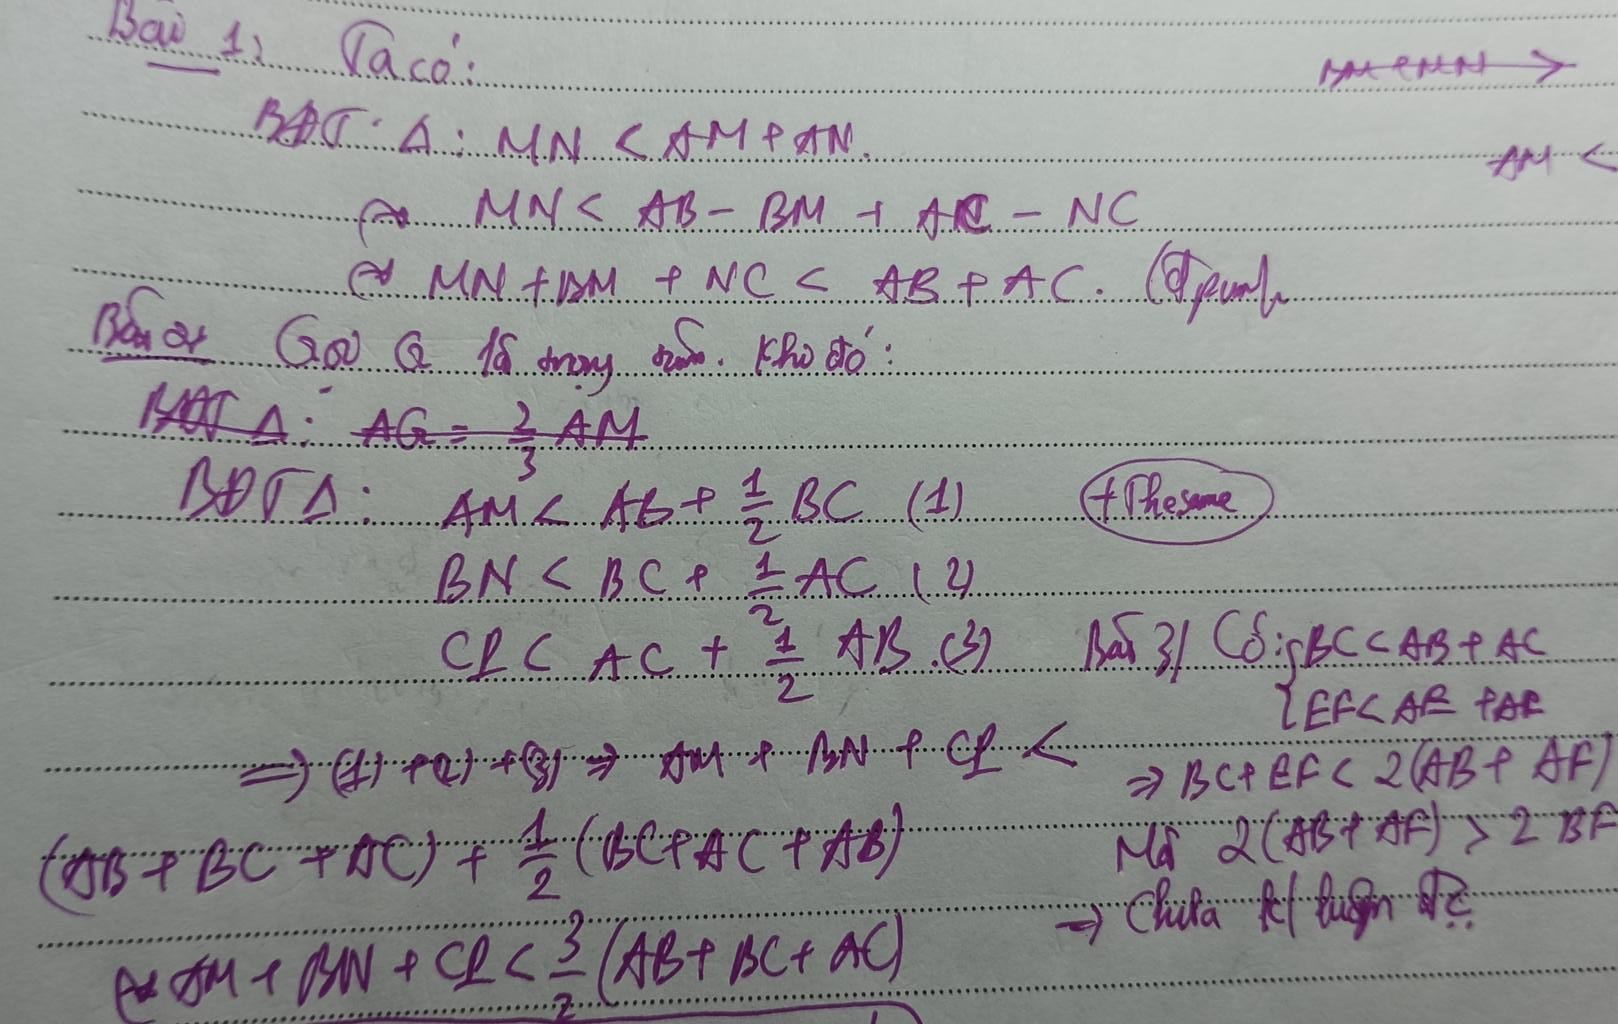 Bài 1: Ta có:
BM + MN →
BĐT Δ: MN < AM + AN.
AM <
MN < AB - BM + AC - NC
MN + BM + NC < AB + AC. (Đpcm)
Bài 2: Gọi G là trọng tâm. Khi đó:
BĐT Δ: AG = 2/3 AM
BĐT Δ: AM < AB + 1/2 BC (1)
BN < BC + 1/2 AC (2)
CP < AC + 1/2 AB. (3)
⇒ (1) + (2) + (3) ⇒ AM + BN + CP <
(AB + BC + AC) + 1/2 (BC + AC + AB)
AM + BN + CP < 3/2 (AB + BC + AC)
Bài 3/ Có: { BC < AB + AC
{ EF < AE + AF
⇒ BC + EF < 2(AB + AF)
Mà 2(AB + AF) > 2 BF
→ Chưa k/ luận đc.